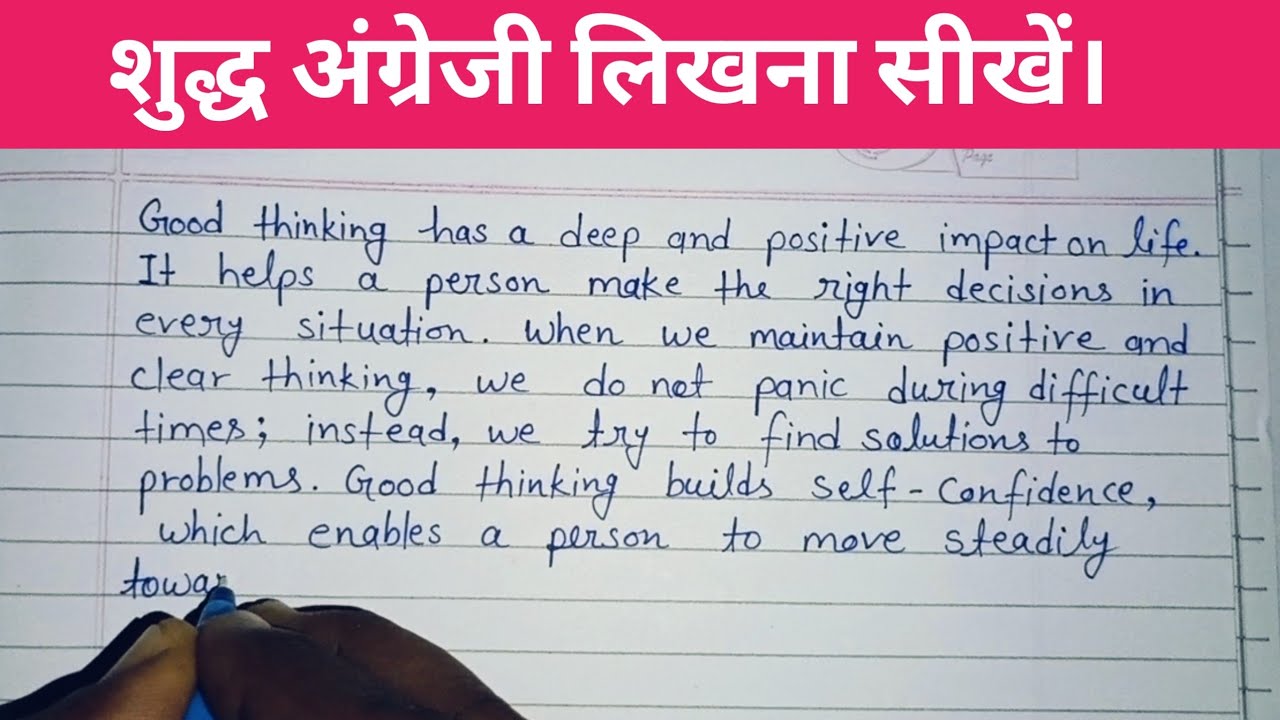 शुद्ध अंग्रेजी लिखना सीखें।
Page
Good thinking has a deep and positive impact on life.
It helps a person make the right decisions in
every situation. When we maintain positive and
clear thinking, we do not panic during difficult
times; instead, we try to find solutions to
problems. Good thinking builds self-confidence,
which enables a person to move steadily
towar